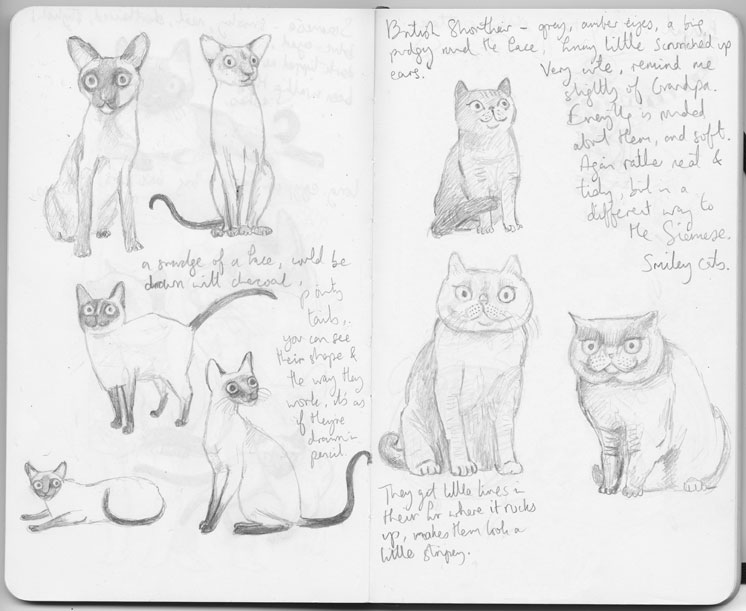 a smudge of a face, could be
drawn with charcoal,
pointy
tails,
you can see
their shape &
the way they
work, it's as
if they're
drawn in
pencil.
British Shorthair – grey, amber eyes, a big
pudgy round the face, funny little scrunched up
ears.
Very cute, remind me
slightly of Grandpa.
Everything is rounded
about them, and soft.
Again rather neat &
tidy, but in a
different way to
the Siamese.
Smiley cats.
They got little lines in
their fur where it rucks
up, makes them look a
little stripey.